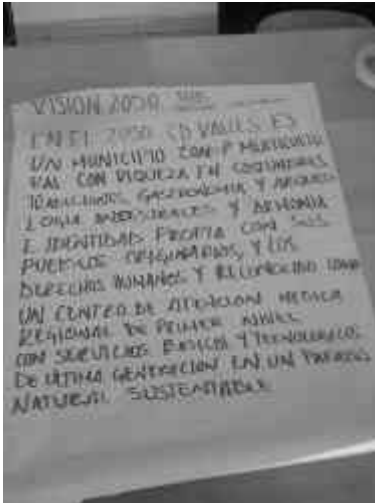 VISION 2050
EN EL 2050 CD VALLES ES
UN MUNICIPIO CON MULTICULTU
RAL CON RIQUEZA EN COSTUMBRES
TRADICIONES GASTRONOMIA Y ARQUEO
LOGIA ANCESTRALES Y ARMONIA
E IDENTIDAD PROPIA CON SUS
PUEBLOS ORIGINARIOS, Y LOS
DERECHOS HUMANOS Y RECONOCIDO COMO
UN CENTRO DE ATENCION MEDICA
REGIONAL DE PRIMER NIVEL
CON SERVICIOS BASICOS Y TECNOLOGICOS
DE ULTIMA GENERACION EN UN PARAISO
NATURAL SUSTENTABLE